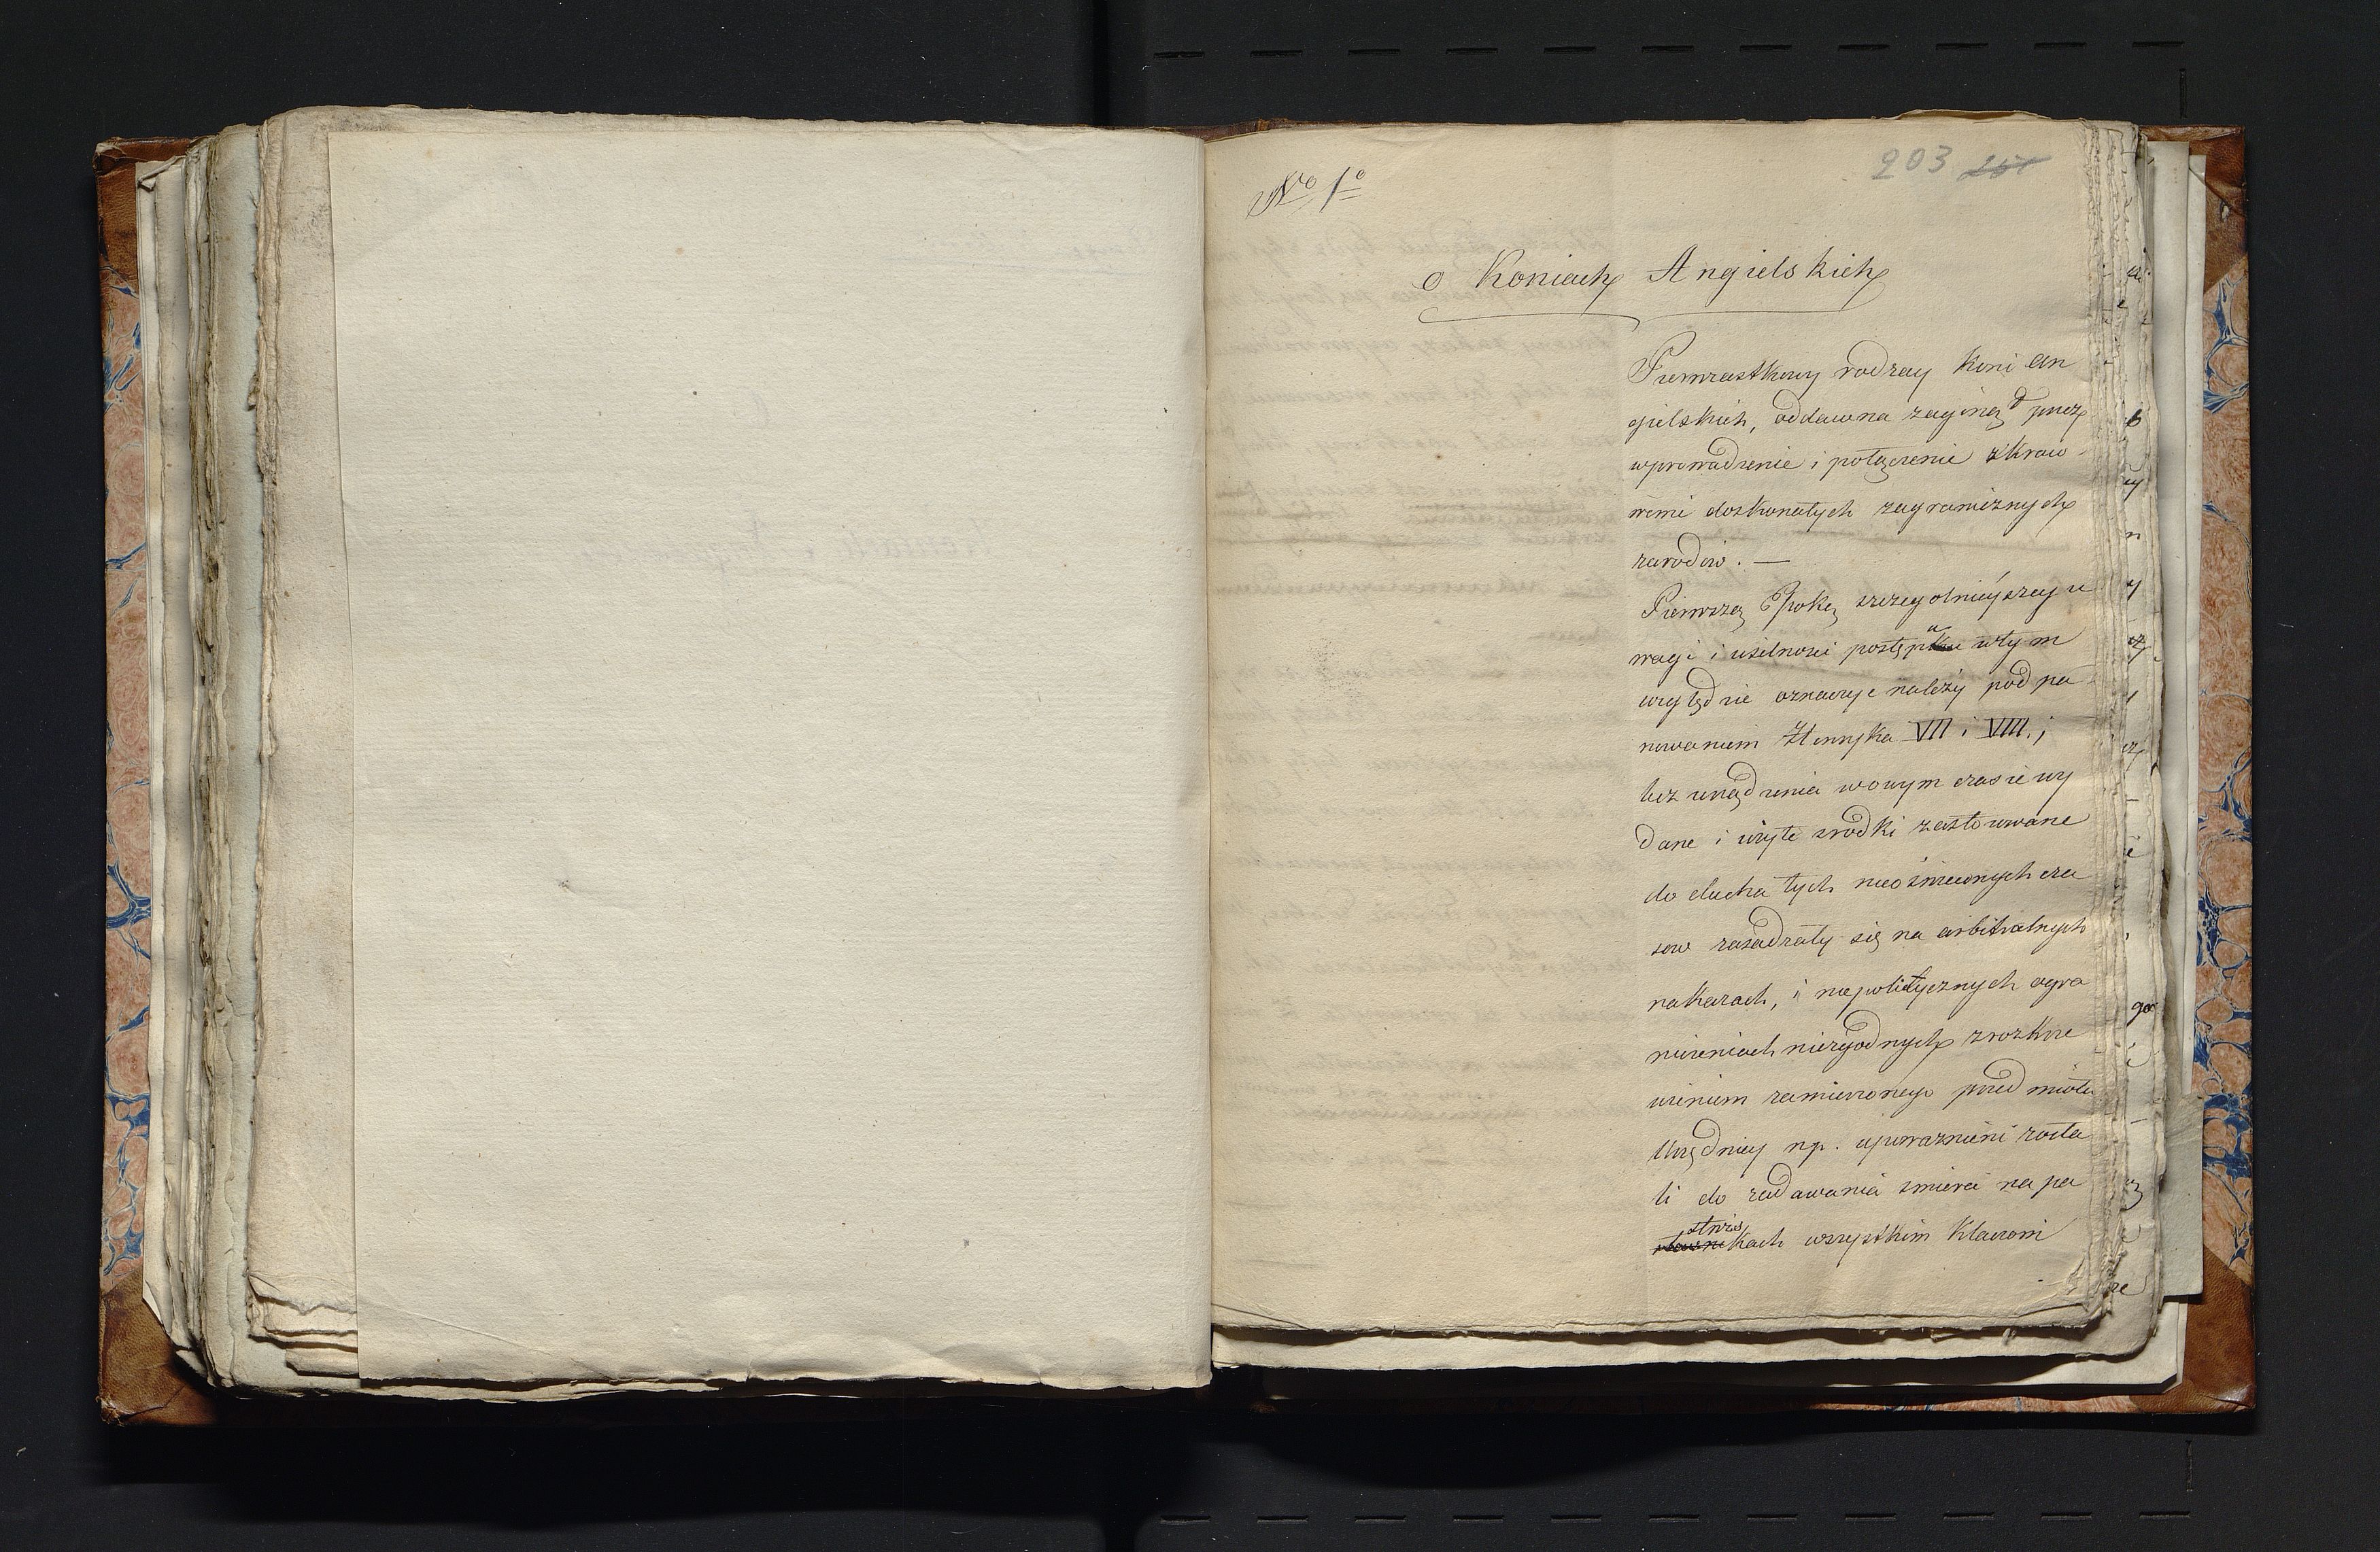 No 1o
203 251
o Koniach Angielskich
Pierwiastkowy rodzay koni an
gielskich, oddawna zaginął przez
wprowadzenie i połączenie z kraio-
wemi doskonałych zagranicznych
zarodów. —
Pierwszą Epokę szczegolnieyszey u
wagi i usilnosci postępku w tym
względzie oznaczyć należy pod pa-
nowaniem Henryka VII i VIII. ;
lecz urządzenia w owym czasie wy
dane i użyte srodki zastosowane
do ducha tych nieoświeconych cza
sow zasadzały się na arbitralnych
nakazach, i niepolitycznych ogra
niczeniach niezgodnych z rozkrze
wieniem zamierzonego przedmiotu
Urzędnicy np. upoważnieni zosta
li do zadawania smierci na pa
stwiskach wszystkim Klaczom